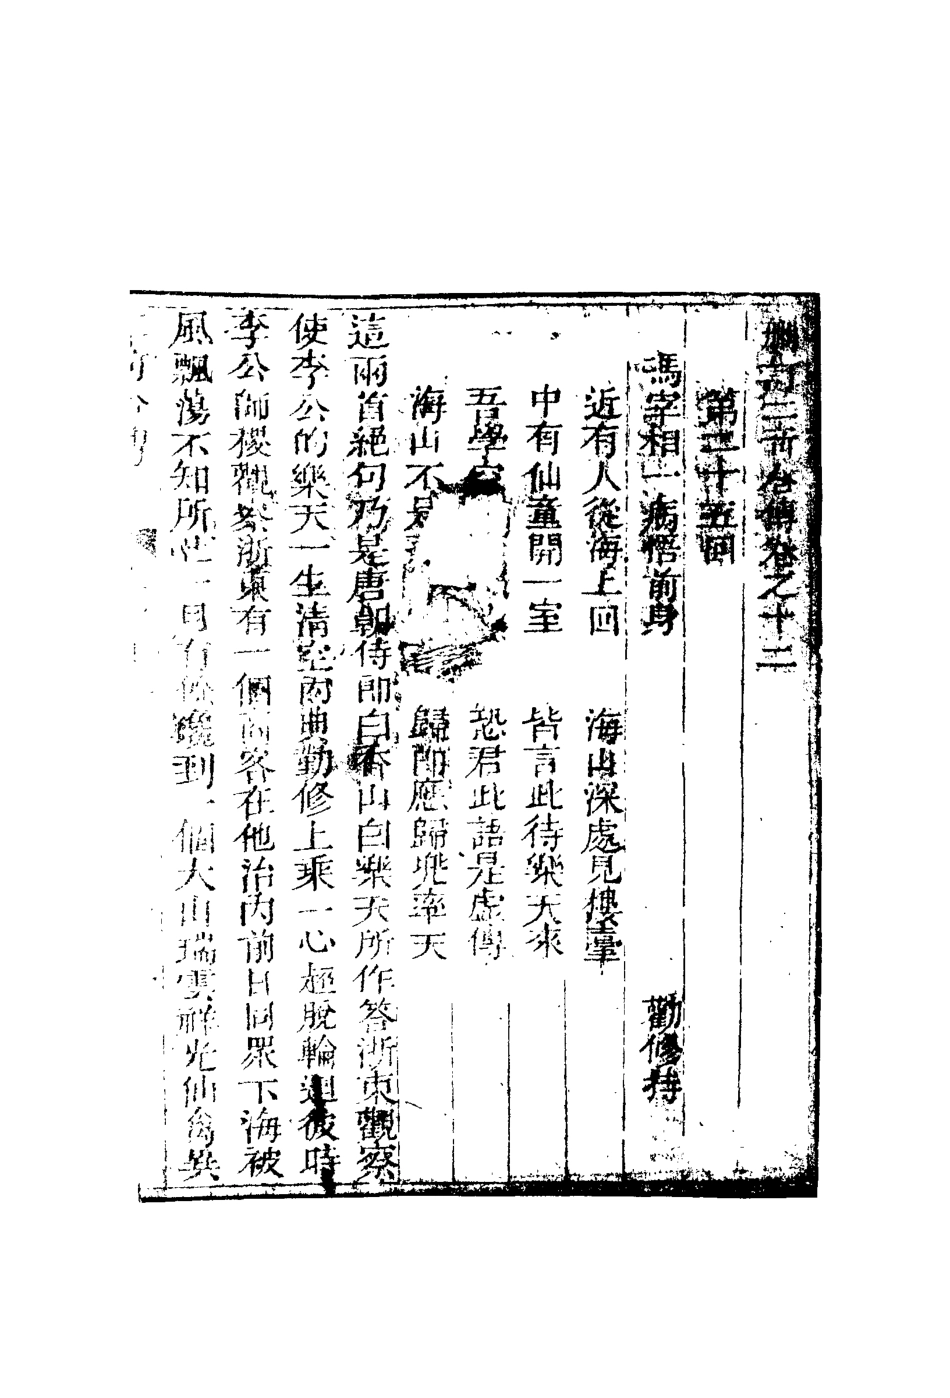 刪訂二奇合傳卷之十二
第二十五回
馮宰相一病悟前身 勸修持
近有人從海上回 海山深處見樓臺
中有仙童開一室 皆言此待樂天來
吾學空 恐君此語是虛傳
海山不是 歸即應歸兜率天
這兩首絕句乃是唐朝侍郎白香山白樂天所作答浙東觀察
使李公的樂天一生清空內典勤修上乘一心超脫輪迴彼時
李公師稷觀察浙東有一個商客在他治內前日同眾下海被
風飄蕩不知所 一月有餘纔到一個大山瑞雲祥光仙禽異